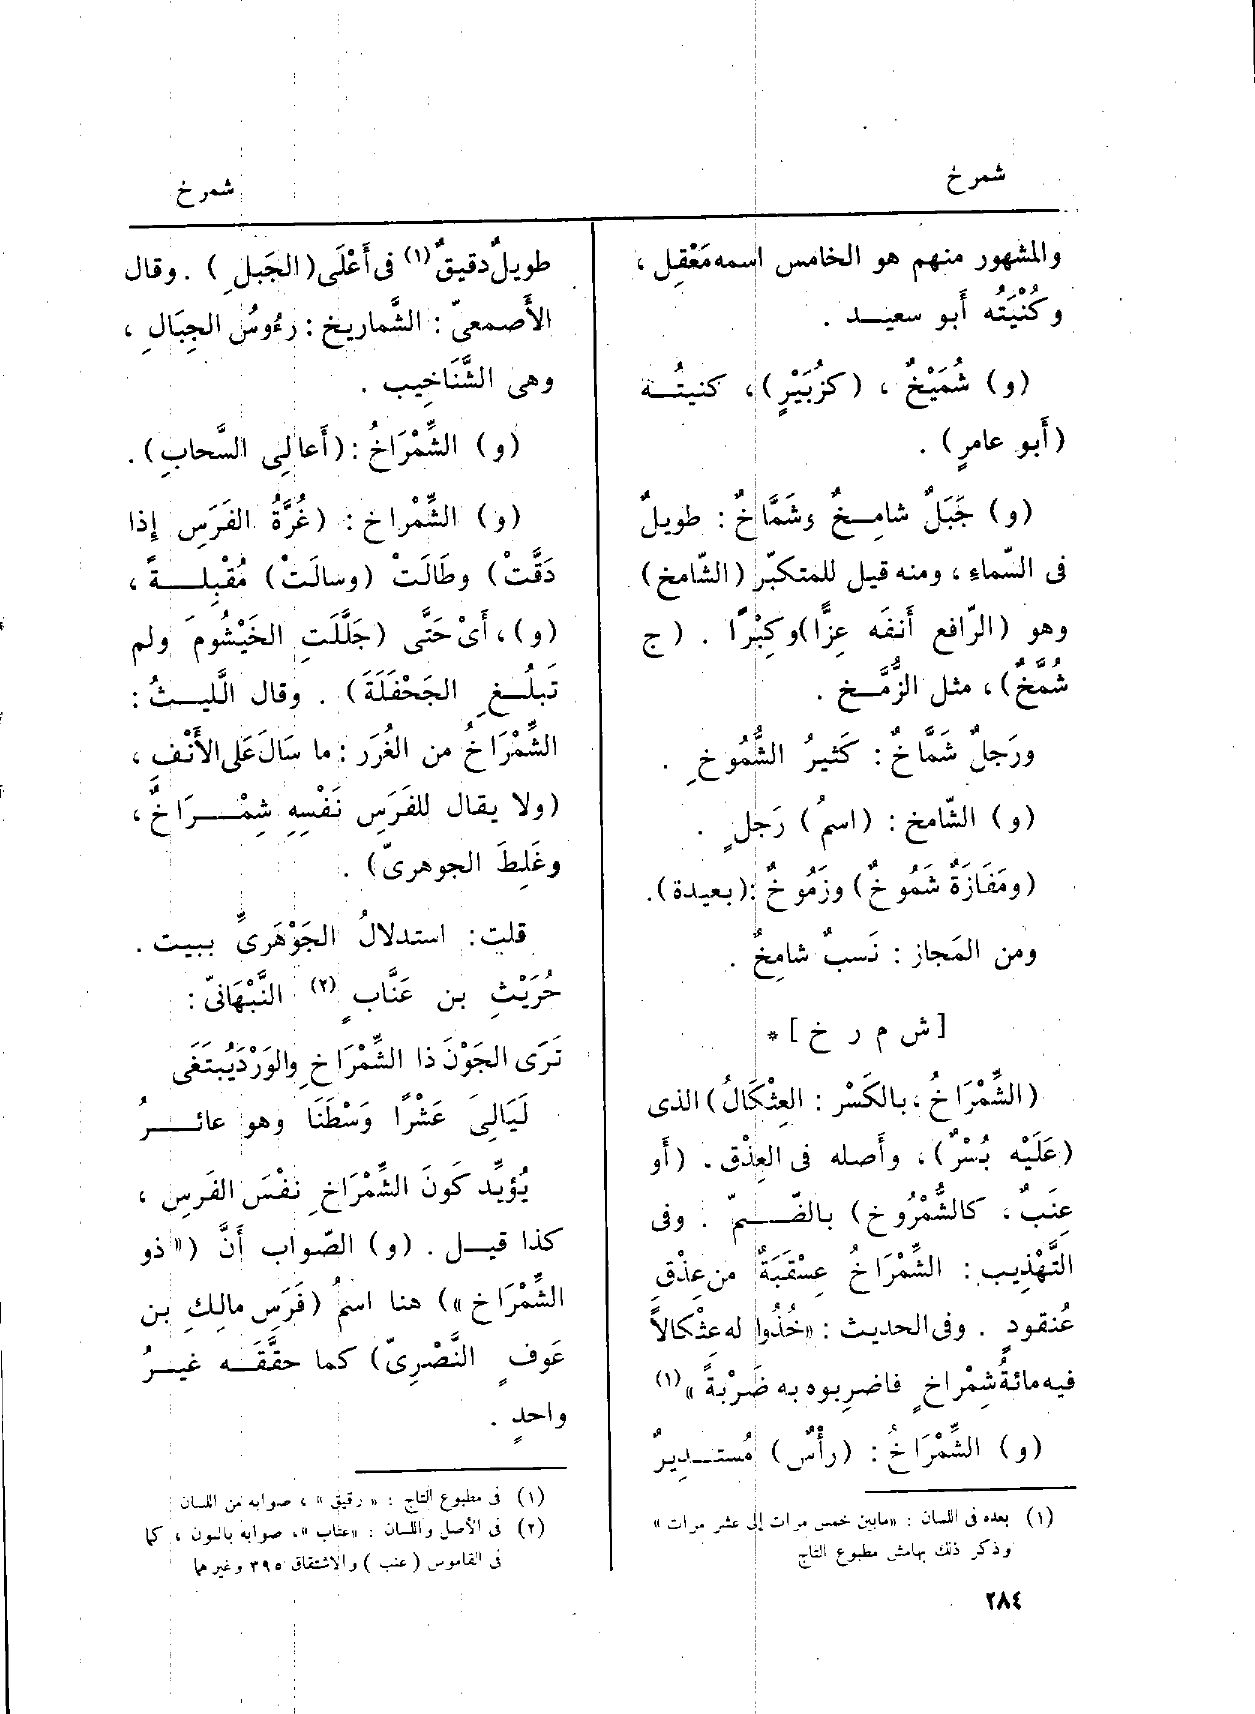 شمرخ
شمرخ
والمشهور منهم هو الخامس اسمه مَعْقِل ،
وكُنْيَتُه أَبو سعيـد .
(و) شُمَيْخٌ ، (كزُبَيْرٍ) ، كنيتُـه
(أَبو عامرٍ) .
(و) جَبَلٌ شامِـخٌ وشَمَّاخٌ : طويلٌ
فى السّماءِ ، ومنه قيل للمتكبّر (الشّامخ)
وهو (الرّافع أَنفَه عِزًّا) وكِبْرًا . (ج
شُمَّخٌ) ، مثل الزُّمَّـخ .
ورَجلٌ شَمَّاخٌ : كَثيرُ الشُّمُوخِ .
(و) الشّامخ : (اسمُ) رَجلٍ .
(ومَفَازَةٌ شَمُوخٌ) وزَمُوخٌ : (بعيدة) .
ومن المَجاز : نَسبٌ شامِخٌ .
[ ش م ر خ ] *
(الشِّمْرَاخُ ، بالكَسْر : العِثْكَالُ) الذى
(عَلَيْه بُسْرٌ) ، وأَصله فى العِذْق . (أَو
عِنَبٌ ، كالشُّمْرُوخ) بالضّـمّ . وفى
التَّهْذِيب : الشِّمْرَاخُ عِسْقَبَةٌ من عِذْقِ
عُنقودٍ . وفى الحديث : «خُذُوا له عِثْكالاً
فيه مائةُ شِمْراخٍ فاضرِبوه به ضَرْبةً » (١)
(و) الشِّمْرَاخُ : (رأْسٌ) مُستـديرٌ
(١) بعده فى اللسان : «مابين خمس مرات إلى عشر مرات »
وذكر ذلك بهامش مطبوع التاج
طويلٌ دقيقٌ (١) فى أَعْلَى (الجَبلِ) . وقال
الأَصمعىّ : الشَّماريخ : رءُوسُ الجِبَالِ ،
وهى الشَّنَاخِيب .
(و) الشِّمْرَاخُ : (أَعالِى السَّحابِ) .
(و) الشِّمْراخ : (غُرَّةُ الفَرَسِ إِذا
دَقَّتْ) وطَالَتْ (وسالَتْ) مُقْبِلـةً ،
(و) ، أَىْ حَتَّى (جَلَّلَتِ الخَيْشُومَ ولم
تَبلُـغِ الجَحْفَلَةَ) . وقال اللَّيـثُ :
الشِّمْرَاخُ من الغُرَر : ما سَالَ عَلى الأَنْفِ ،
(ولا يقال للفَرَسِ نَفْسِهِ شِمْـرَاخٌ ،
وغَلِطَ الجوهرىّ) .
قلت : استدلالُ الجَوْهَرىّ ببيت .
حُرَيْثِ بن عَنَّابٍ (٢) النَّبْهَانىّ :
تَرَى الجَوْنَ ذا الشِّمْرَاخِ والوَرْدَ يُبتَغَى
لَيَالِىَ عَشْرًا وَسْطَنَا وهو عائـرُ
يُؤيِّد كَونَ الشِّمْرَاخِ نفْسَ الفَرسِ ،
كذا قيـل . (و) الصّواب أَنَّ («ذو
الشِّمْرَاخ ») هنا اسمُ (فَرَسِ مالِكِ بن
عَوفٍ النَّصْرِىّ) كما حقَّقَـه غيـرُ
واحدٍ .
(١) فى مطبوع التاج : « رقيق » ، صوابه من اللسان
(٢) فى الأصل واللسان : «عتاب »، صوابه بالنون ، كما
فى القاموس ( عنب ) والاشتقاق ٣٩٥ وغيرهما
٢٨٤